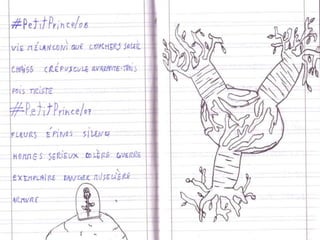 #PetitPrince/06
VIE MÉLANCONIQUE COUCHERS SOLEIL
CHAISE CRÉPUSCULE QUARANTE-TROIS
FOIS TRISTE
#PetitPrince/07
FLEURS ÉPINES SILENCE
HOMMES SERIEUX COLÈRE GUERRE
EXEMPLAIRE DANGER MUSELIÈRE
ARMURE